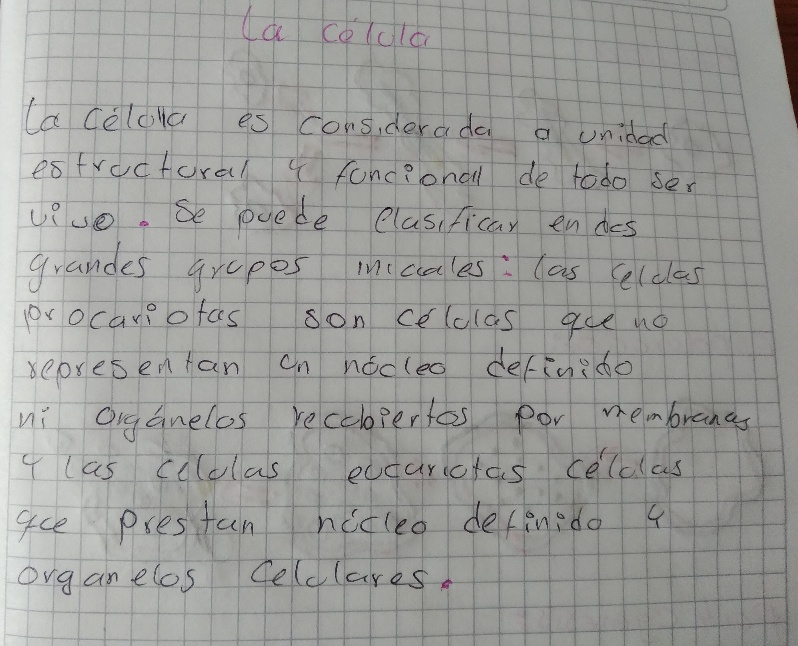 La célula
La célula es considerada a unidad
estructural y funcional de todo ser
vivo. Se puede clasificar en dos
grandes grupos iniciales: las celulas
procariotas son células que no
representan un núcleo definido
ni orgánelos recubiertos por membranas
y las celulas eucariotas células
que prestan núcleo definido y
organelos celulares.